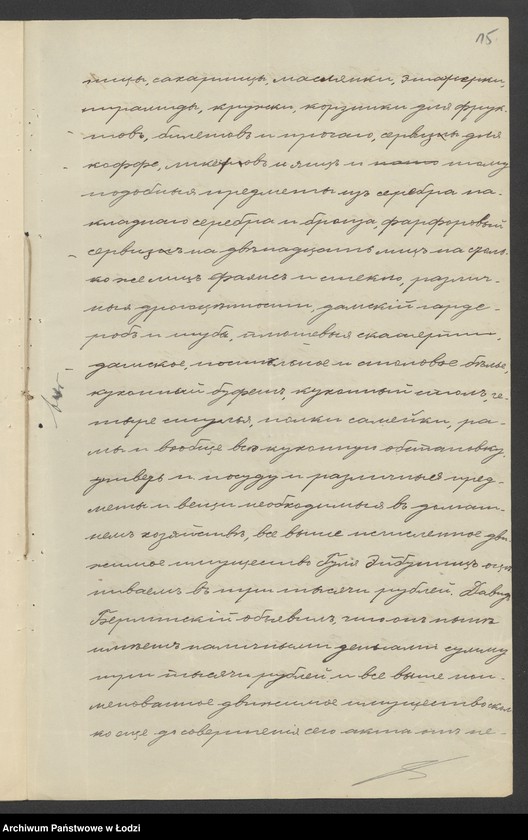 15.
ницы, сахарницы, маслянки, этажерки,
пирамиды, кружки, корзинки для фрук-
товъ, билетовъ и прочаго, сервизы для
кофе, ликеровъ и яицъ и тому
подобныя предметы изъ серебра на-
кладнаго серебра и бронза, фарфоровый
сервизъ на двѣнадцать лицъ на столь-
ко же лицъ фаянсъ и стекло, различ-
ныя драгоцѣнности, дамскій гарде-
робъ и шубы, плюшевыя скатерти,
дамское, постельное и столовое бѣлье,
кухонный буфетъ, кухонный столъ, че-
тыре стулья, полки скамейки, ра-
мы и вообще всю кухонную обстановку,
утварь и посуду и различныя пред-
меты и вещи необходимыя въ домаш-
немъ хозяйствѣ, все выше исчисленное дви-
жимое имущество Гуля Эйбушицъ оцѣ-
ниваемъ въ три тысячи рублей. Давидъ
Берлинскій объявилъ, что онъ нынѣ
имѣетъ наличными деньгами сумму
три тысячи рублей и все выше пои-
менованное движимое имущество
ко еще до совершенія сего акта отъ не-
Archiwum Państwowe w Łodzi